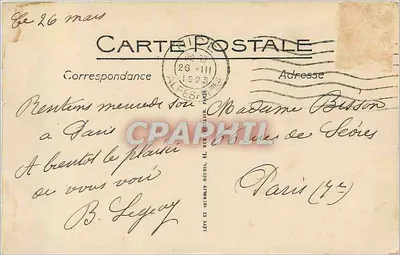 Le 26 mars
CARTE POSTALE
Correspondance
Adresse
26 III
1923
ALPES-MMES
Rentrons mercredi soir
à Paris
A bientôt le plaisir
de vous voir
B. Legeay
Madame Bisson
rue de Sèvres
Paris (7e)
CPAPHIL
LÉVY ET NEURDEIN RÉUNIS, 44, RUE LETELLIER, PARIS